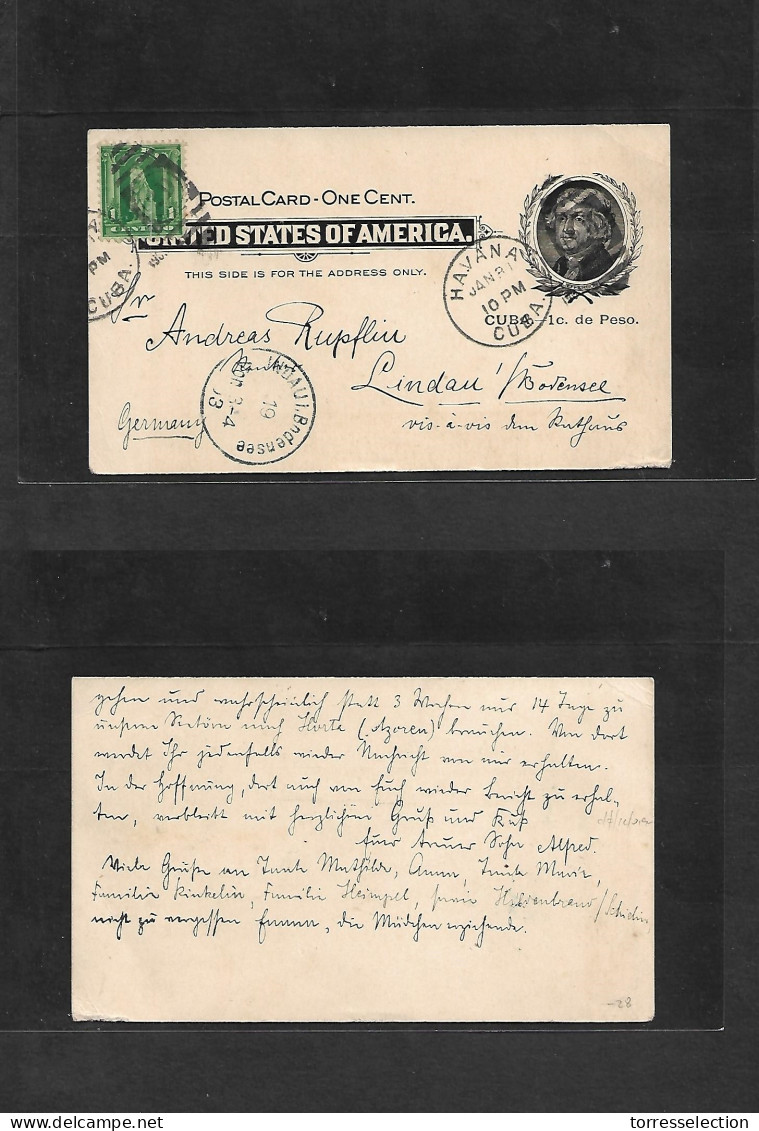 1 CENT 1
POSTAL CARD - ONE CENT.
UNITED STATES OF AMERICA.
THIS SIDE IS FOR THE ADDRESS ONLY.
PM
CUBA.
HAVANA
JAN 31
10 PM
CUBA.
CUBA—1c. de Peso.
Andreas Rupflin
Lindau i/Bodensee
vis-à-vis dem Rathaus
Germany
LINDAU i. Bodensee
19
3-4
03
gehen und wahrscheinlich statt 3 Wochen nur 14 Tage zu
unserer Retour nach Horta (Azoren) brauchen. Von dort
werdet Ihr jedenfalls wieder Nachricht von mir erhalten.
In der Hoffnung, dort auch von Euch wieder Bericht zu erhal-
ten, verbleibt mit herzlichem Gruß und Kuß
Euer treuer Sohn Alfred.
Viele Grüße an Tante Mathilde, Anna, Tante Marie,
Familie Kinkelin, Familie Heimpel, sowie Hildenbrand/
nicht zu vergessen Emma, die Mädchen erziehende.
-28
torresselection